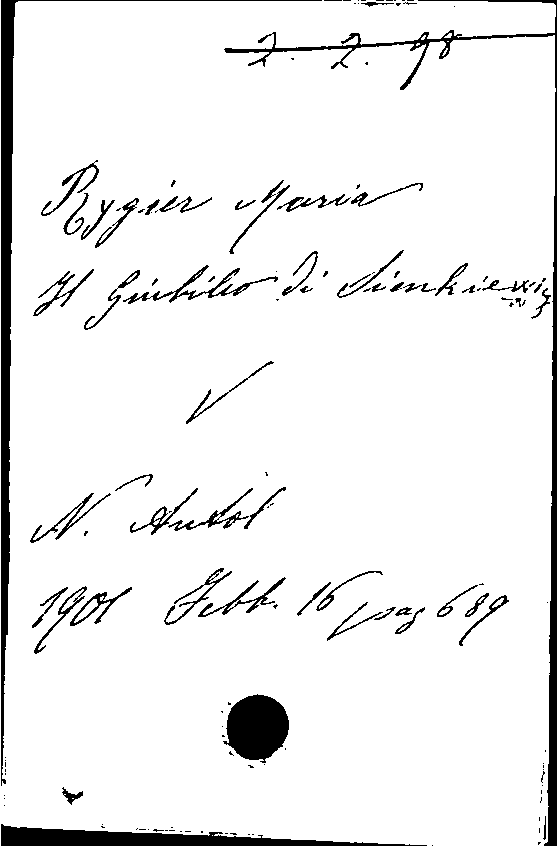 2. 2. 98
Rygier Maria
Il Giubileo di Sienkiewicz
V
N. Antol
1901 Febb. 16 pag 689